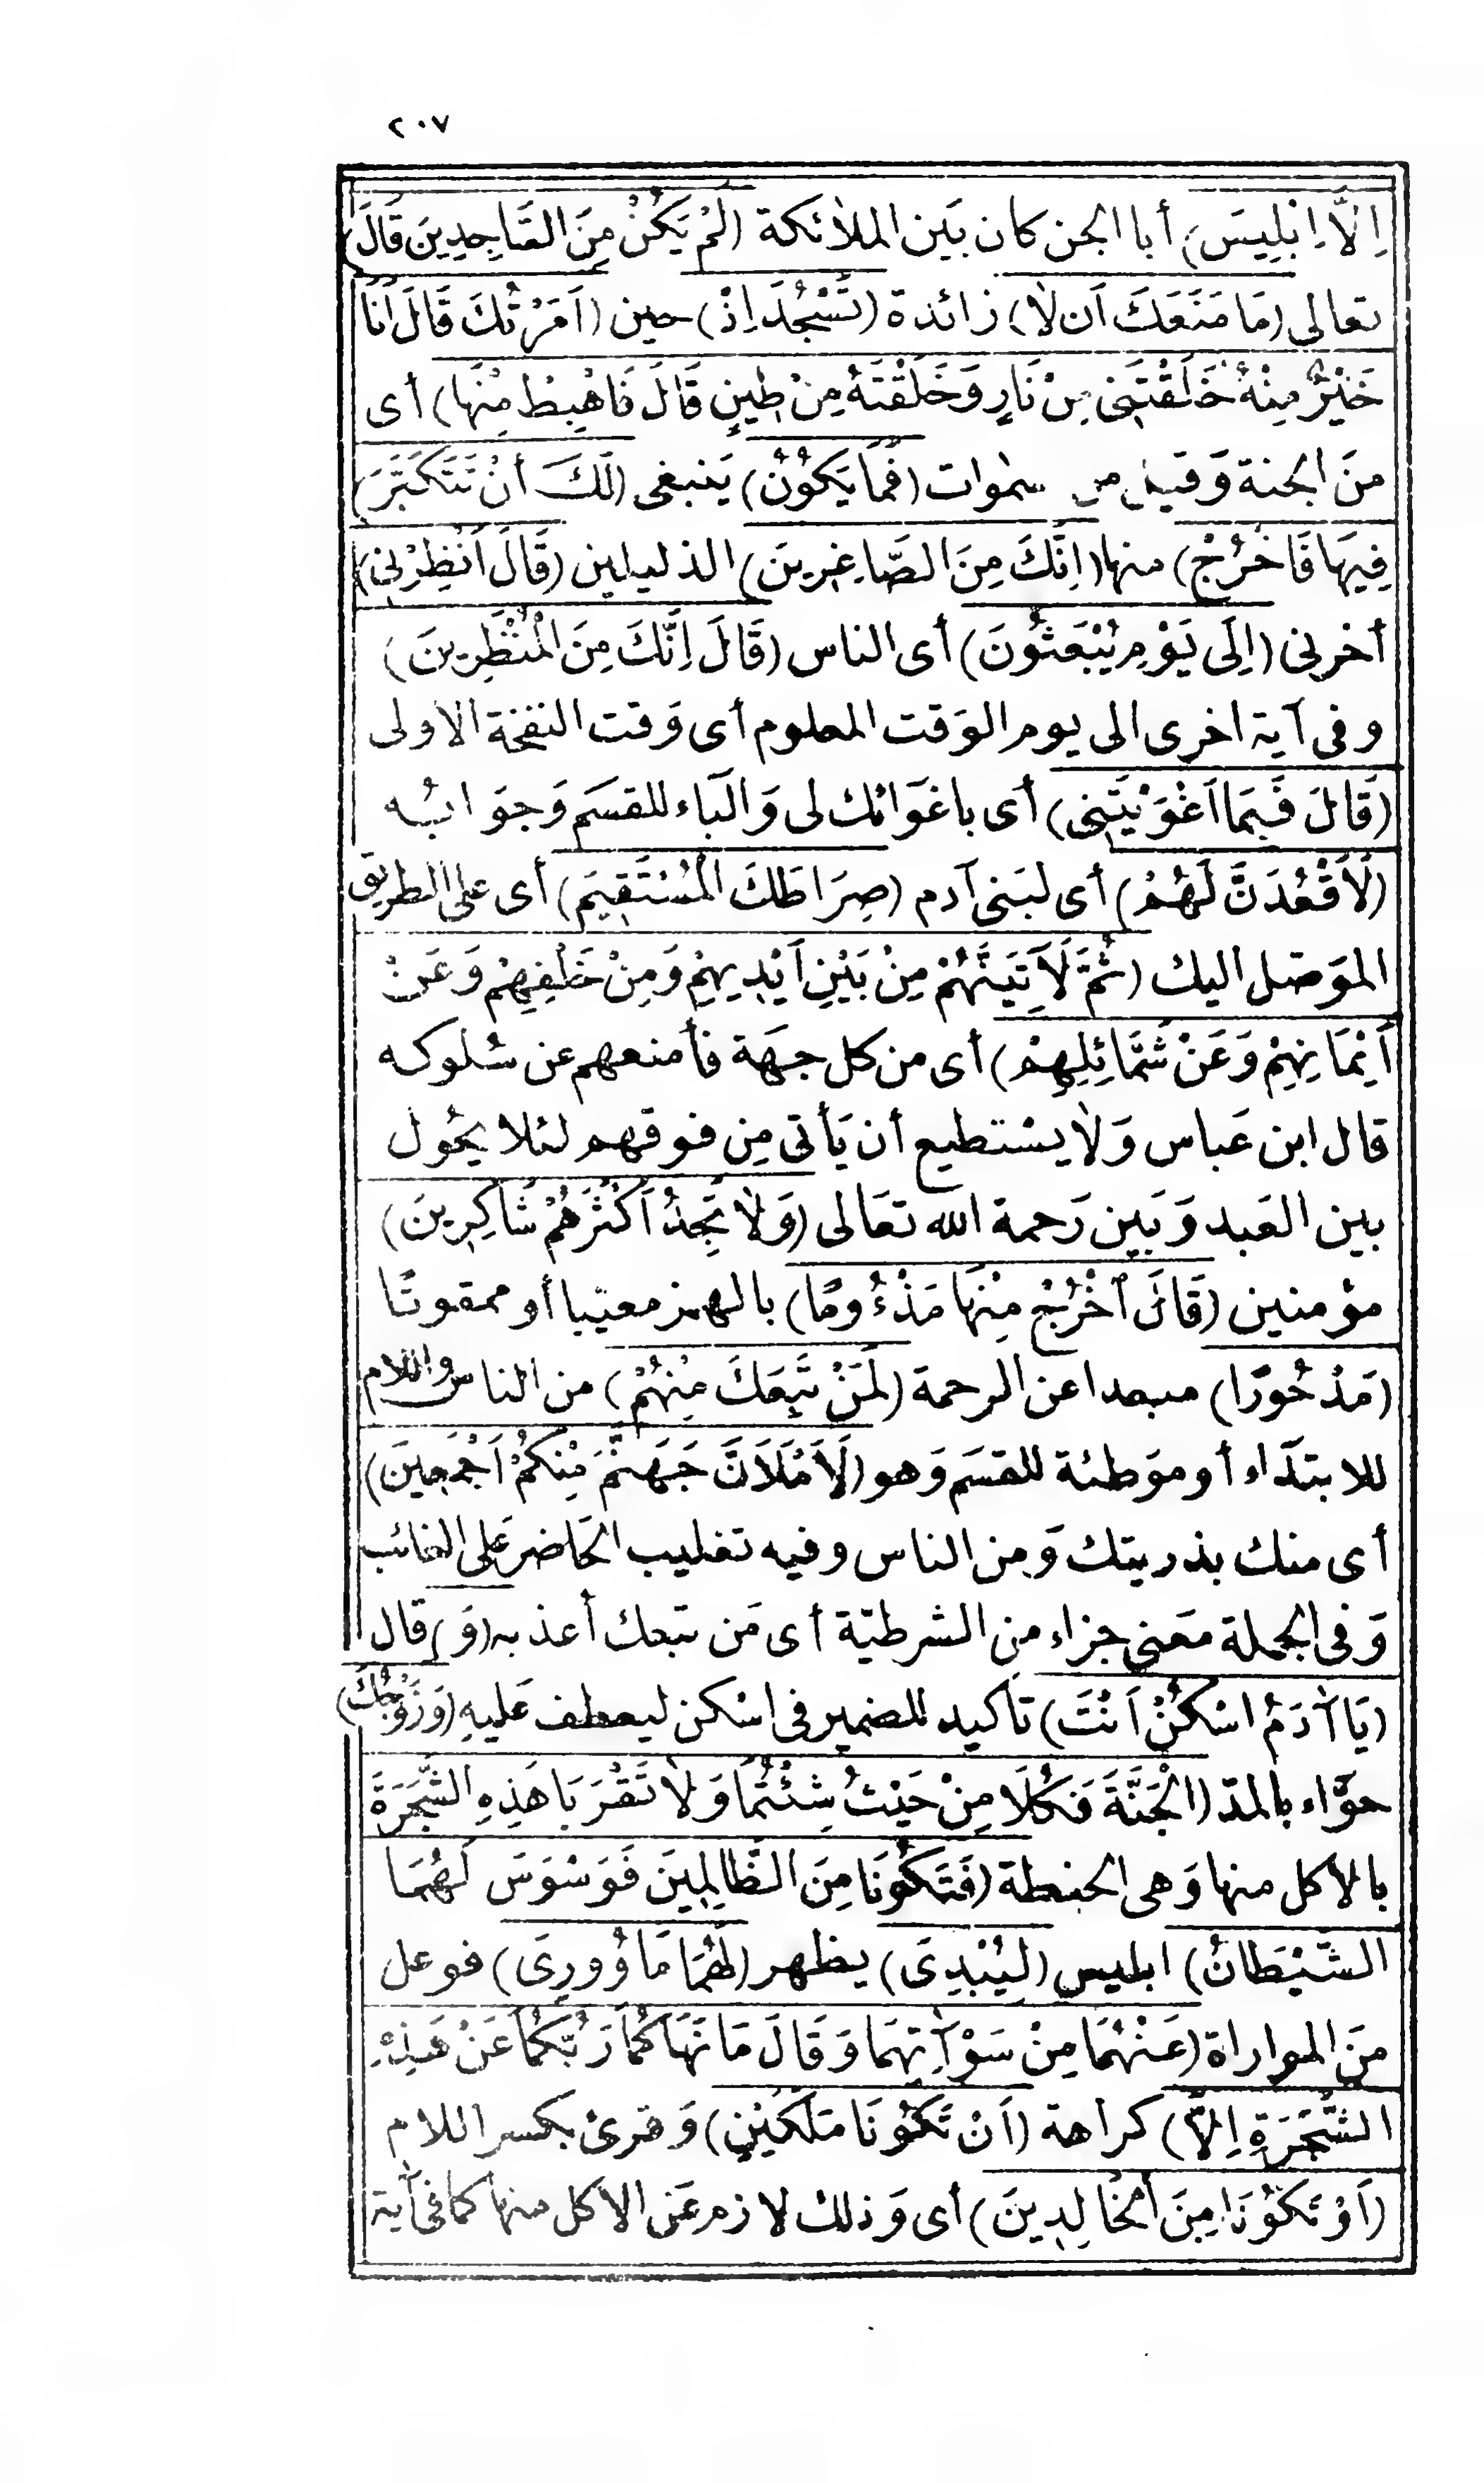 ٢٠٧
اِلَّا اِبْلِيسَ) أبا الجن كان بَين الملائكة (لَمْ يَكُنْ مِنَ السَّاجِدِينَ قَالَ)
تعالى (مَا مَنَعَكَ اَن لَا) زائدة (تَسْجُدَ اِذْ) حين (اَمَرْتُكَ قَالَ اَنَا
خَيْرٌ مِنْهُ خَلَقْتَنِى مِنْ نَارٍ وَخَلَقْتَهُ مِنْ طِينٍ قَالَ فَاهْبِطْ مِنْهَا) أى
منَ الجنة وَقيل من سمٰوات (فَمَا يَكُونُ) يَنبغى (لَكَ أَنْ تَتَكَبَّرَ)
فِيهَا فَاخْرُجْ) منها (اِنَّكَ مِنَ الصَّاغِرِينَ) الذليلين (قَالَ اَنْظِرْنِى)
أخرنى (اِلَى يَوْمِ يُبْعَثُونَ) أى الناس (قَالَ اِنَّكَ مِنَ الْمُنْظَرِينَ)
وفى آية اخرى الى يوم الوَقت المعلوم أى وَقت النفخة الاولى
(قَالَ فَبِمَا اَغْوَيْتَنِى) أى باغوَائك لى وَالبَاء للقسَم وَجوَابُه
(لَاَقْعُدَنَّ لَهُمْ) أى لبَنى آدم (صِرَاطَكَ الْمُسْتَقِيمَ) أى على الطريق
الموَصّل اليك (ثُمَّ لَآتِيَنَّهُمْ مِنْ بَيْنِ اَيْدِيهِمْ وَمِنْ خَلْفِهِمْ وَعَنْ
اَيْمَانِهِمْ وَعَنْ شَمَائِلِهِمْ) أى من كل جهَة فأمنعهم عن سُلوكه
قال ابن عَباس وَلا يسْتطيع أن يَأتى مِن فوقهم لئلا يحُول
بين العَبد وَبَين رَحمة الله تعَالى (وَلَا تَجِدُ اَكْثَرَهُمْ شَاكِرِينَ)
مؤمنين (قَالَ اخْرُجْ مِنْهَا مَذْءُومًا) بالهمز معيّبا أو ممقوتًا
(مَدْحُورًا) مبعدا عن الرحمة (لَمَنْ تَبِعَكَ مِنْهُمْ) من الناس واللام
للابتدَاء أو موَطئة للقسَم وَهو (لَاَمْلَاَنَّ جَهَنَّمَ مِنْكُمْ اَجْمَعِينَ)
أى منك بذريتك وَمن الناس وفيه تغليب الحَاضر عَلى الغائب
وَفى الجملة مَعنى جزاء من الشرطيّة أى مَن تبعك أعذبه (وَ) قال
(يَا آدَمُ اسْكُنْ اَنْتَ) تأكيد للضمير فى اسْكن ليعطف عَليهِ (وَزَوْجُكَ)
حوَّاء بالمدّ (الْجَنَّةَ فَكُلَا مِنْ حَيْثُ شِئْتُمَا وَلَا تَقْرَبَا هَذِهِ الشَّجَرَةَ
بالأكل منها وَهى الحنطة (فَتَكُونَا مِنَ الظَّالِمِينَ فَوَسْوَسَ لَهُمَا
الشَّيْطَانُ) ابليس (لِيُبْدِىَ) يظهر (لَهُمَا مَا وُورِىَ) فوعل
منَ المواراة (عَنْهُمَا مِنْ سَوْآتِهِمَا وَقَالَ مَا نَهَاكُمَا رَبُّكُمَا عَنْ هَذِهِ
الشَّجَرَةِ اِلَّا) كراهة (اَنْ تَكُونَا مَلَكَيْنِ) وَقرئ بكسر اللام
(اَوْ تَكُونَا مِنَ الْخَالِدِينَ) أى وَذلك لازم عَن الاكل منها كما فى آية